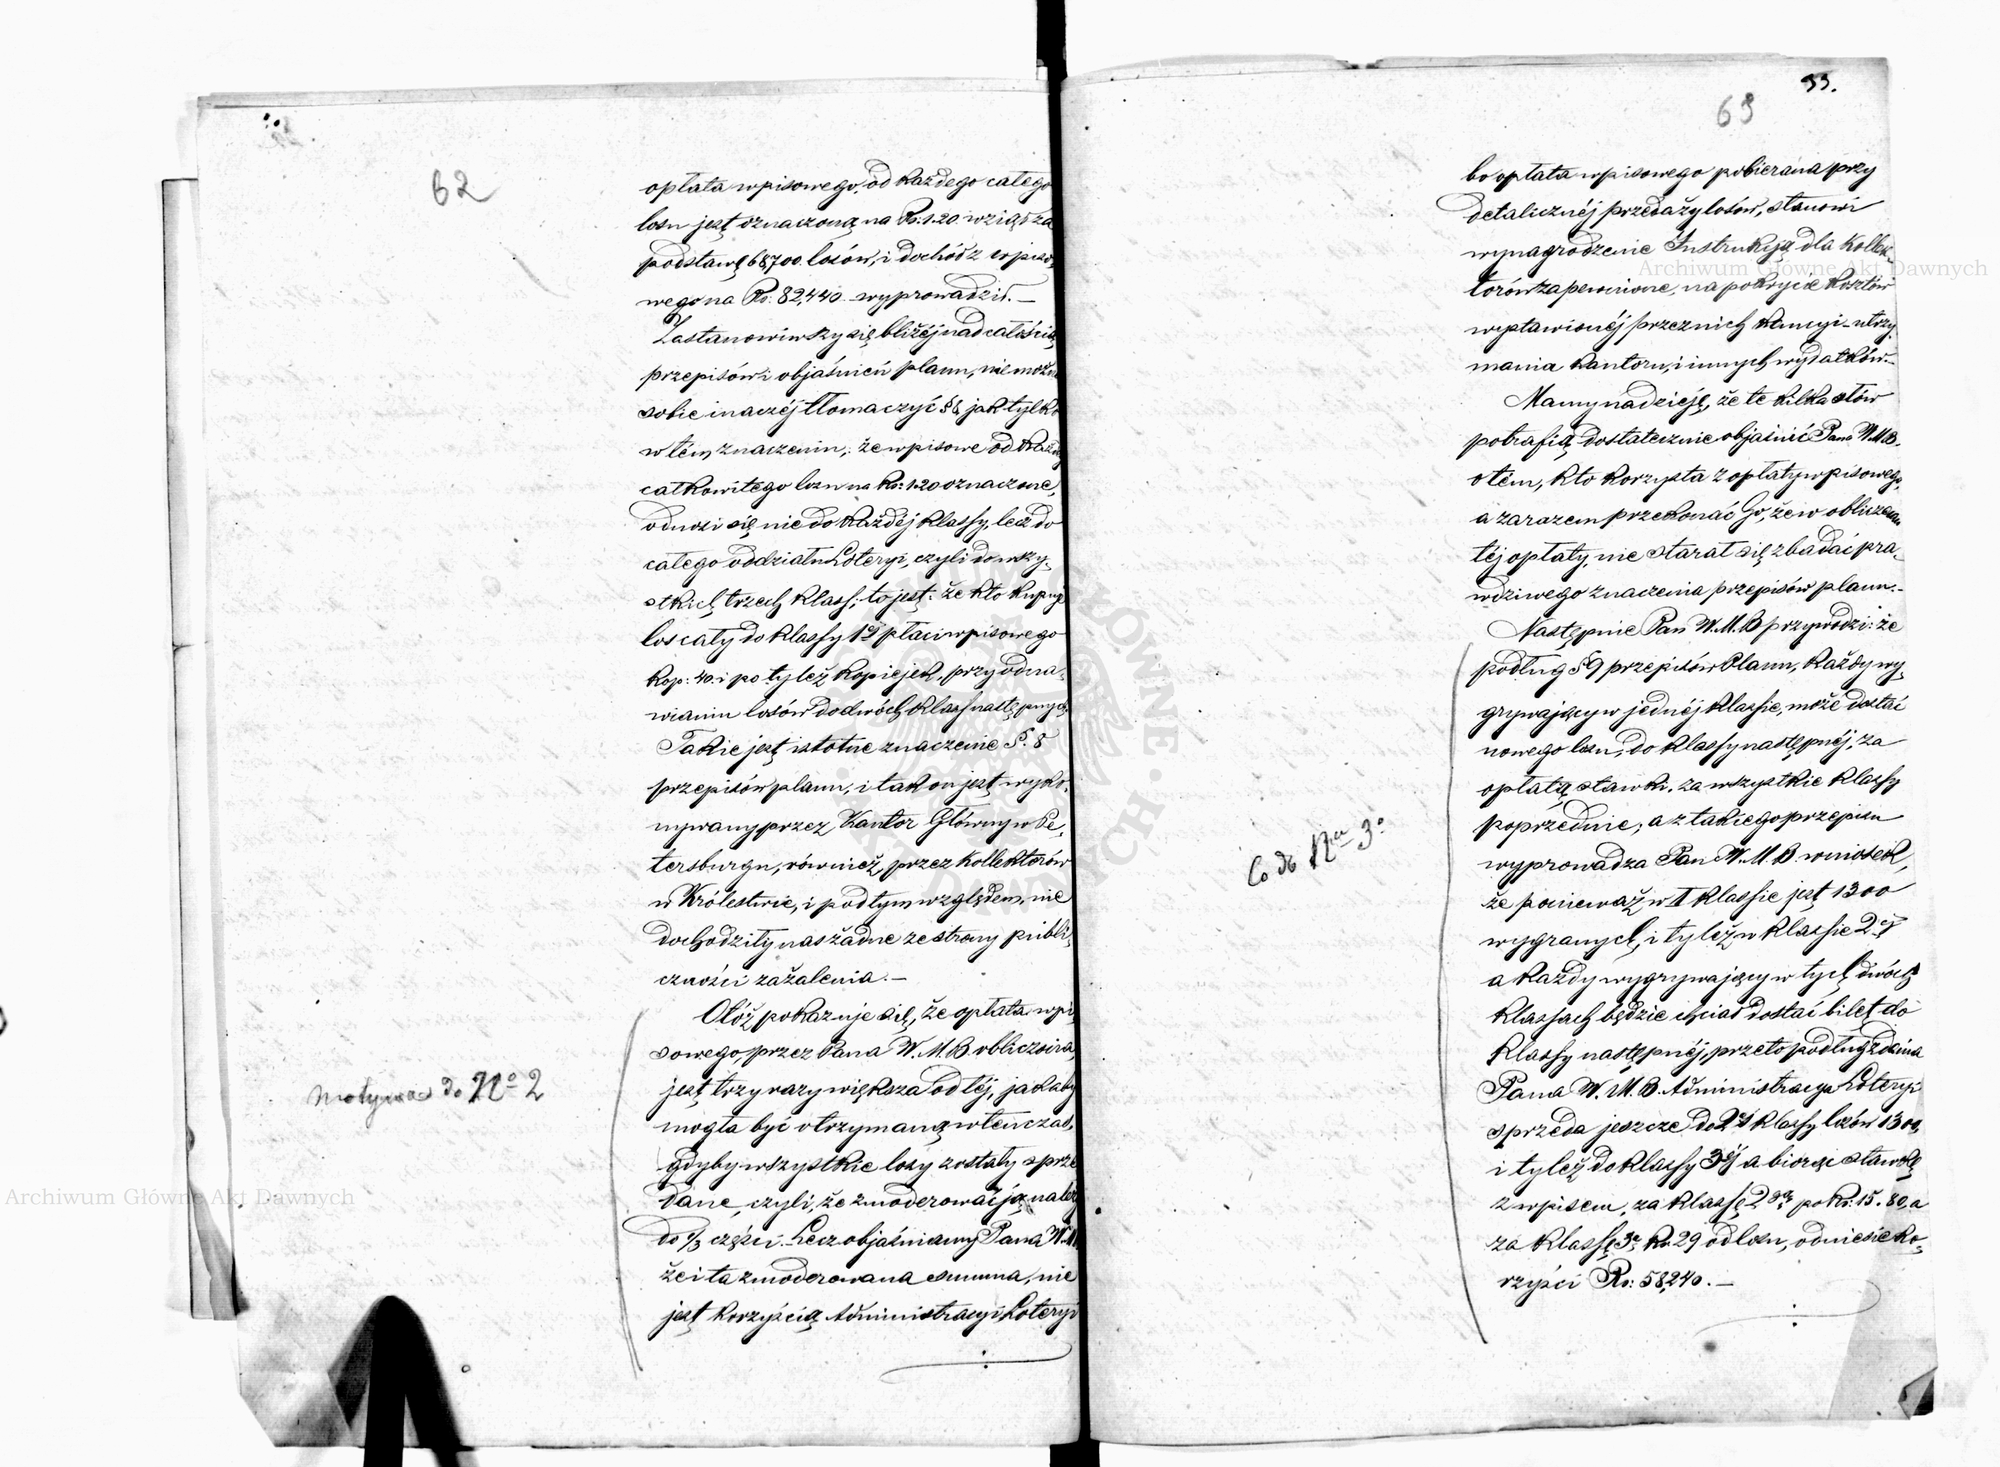 62
opłata wpisowego, od każdego całego
losu jest oznaczoną na Rs: 1.20. wziął za
podstawę 68,700. losów, i dochód z wpiso-
wego na Rs: 82,440 – wyprowadził. –
Zastanowiwszy się bliżéj nad całością
przepisów i objaśnień planu, nie można
sobie inaczéj tłomaczyć § 8, jak tylko
w tém znaczeniu, że wpisowe od każdego
całkowitego losu na Rs: 1.20 oznaczone,
odnosi się nie do każdéj klassy, lecz do
całego oddziału Loteryi, czyli do wszy-
stkich trzech klass; to jest: że kto kupuje
los cały do klassy 1éj płaci wpisowego
kop: 40. i po tyleż kopiejek, przy odna-
wianiu losów do dwóch klass następnych.
Takie jest istotne znaczenie §. 8
przepisów planu, i tak on jest wyko-
nywany przez Kantor Główny w Pe-
tersburgu, również, przez Kollektorów
w Królestwie, i pod tym względem, nie
dochodziły nas żadne ze strony publi-
czności zażalenia. –
Otóż pokazuje się, że opłata wpi-
sowego, przez Pana W. M. B. obliczona,
jest trzy razy większa od téj, jakaby
mogła być otrzymaną wtenczas,
gdyby wszystkie losy zostały sprze-
dane, czyli, że zmoderować ją należy
do 1/3 części. Lecz objaśniamy Pana W. M.
że i ta zmoderowana summa, nie
jest korzyścią Administracyi Loteryi
do Nº 2
33.
63
bo opłata wpisowego pobierana przy
detalicznéj przedaży losów, stanowi
wynagrodzenie Instrukcją dla Kollek-
torów zapewnione, na pokrycie kosztów
wystawionéj przez nich kaucyi – utrzy-
mania kantoru, i innych wydatków. –
Mamy nadzieję, że te kilka słów
potrafią dostatecznie objaśnić Pana W. M. B.
o tém, kto korzysta z opłaty wpisowego,
a zarazem przekonać Go, że w obliczeniu
téj opłaty, nie starał się zbadać pra-
wdziwego znaczenia przepisów planu. –
Następnie Pan W. M. B przywodzi: że
podług § 9 przepisów Planu, każdy wy-
grywający w jednéj klassie, może dostać
nowego losu, do klassy następnéj, za
opłatą stawki, za wszystkie klassy
poprzednie; a z takiego przepisu
wyprowadza Pan W. M. B. wniosek,
że ponieważ w I klassie jest 1300
wygranych, i tyleż w klassie 2éj
a każdy wygrywający w tych dwóch
klassach będzie chciał dostać bilet do
klassy następnéj, przeto podług zdania
Pana W. M. B. Administracya Loteryi
sprzeda jeszcze do 2éj klassy losów 1300,
i tyleż do klassy 3éj a biorąc stawkę
z wpisem, za klassę 2gą po Rs: 15. 80, a
za klassę 3ą Rs. 29 od losu, odniesie ko-
rzyści Rs: 58,240. –
Co do Nru 3º
Archiwum Główne Akt Dawnych
Archiwum Główne Akt Dawnych